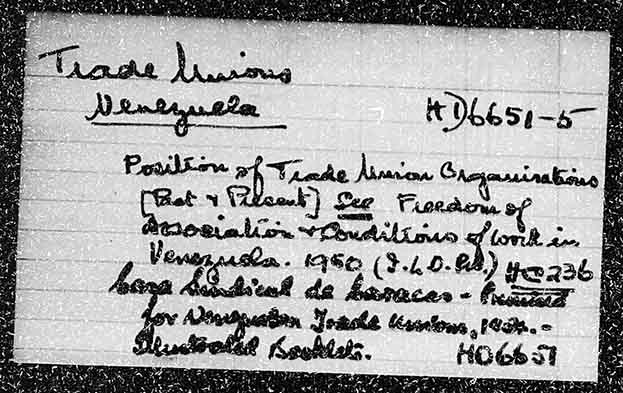 Trade Unions
Venezuela HD6651-5
Position of Trade Union Organisations
[Past & Present] See Freedom of
Association & Conditions of work in
Venezuela. 1950 (I.L.O. Pub.) HC236
Casa Sindical de Caracas -
for Venezuelan Trade Unions, -
Illustrated Booklets. HD6651